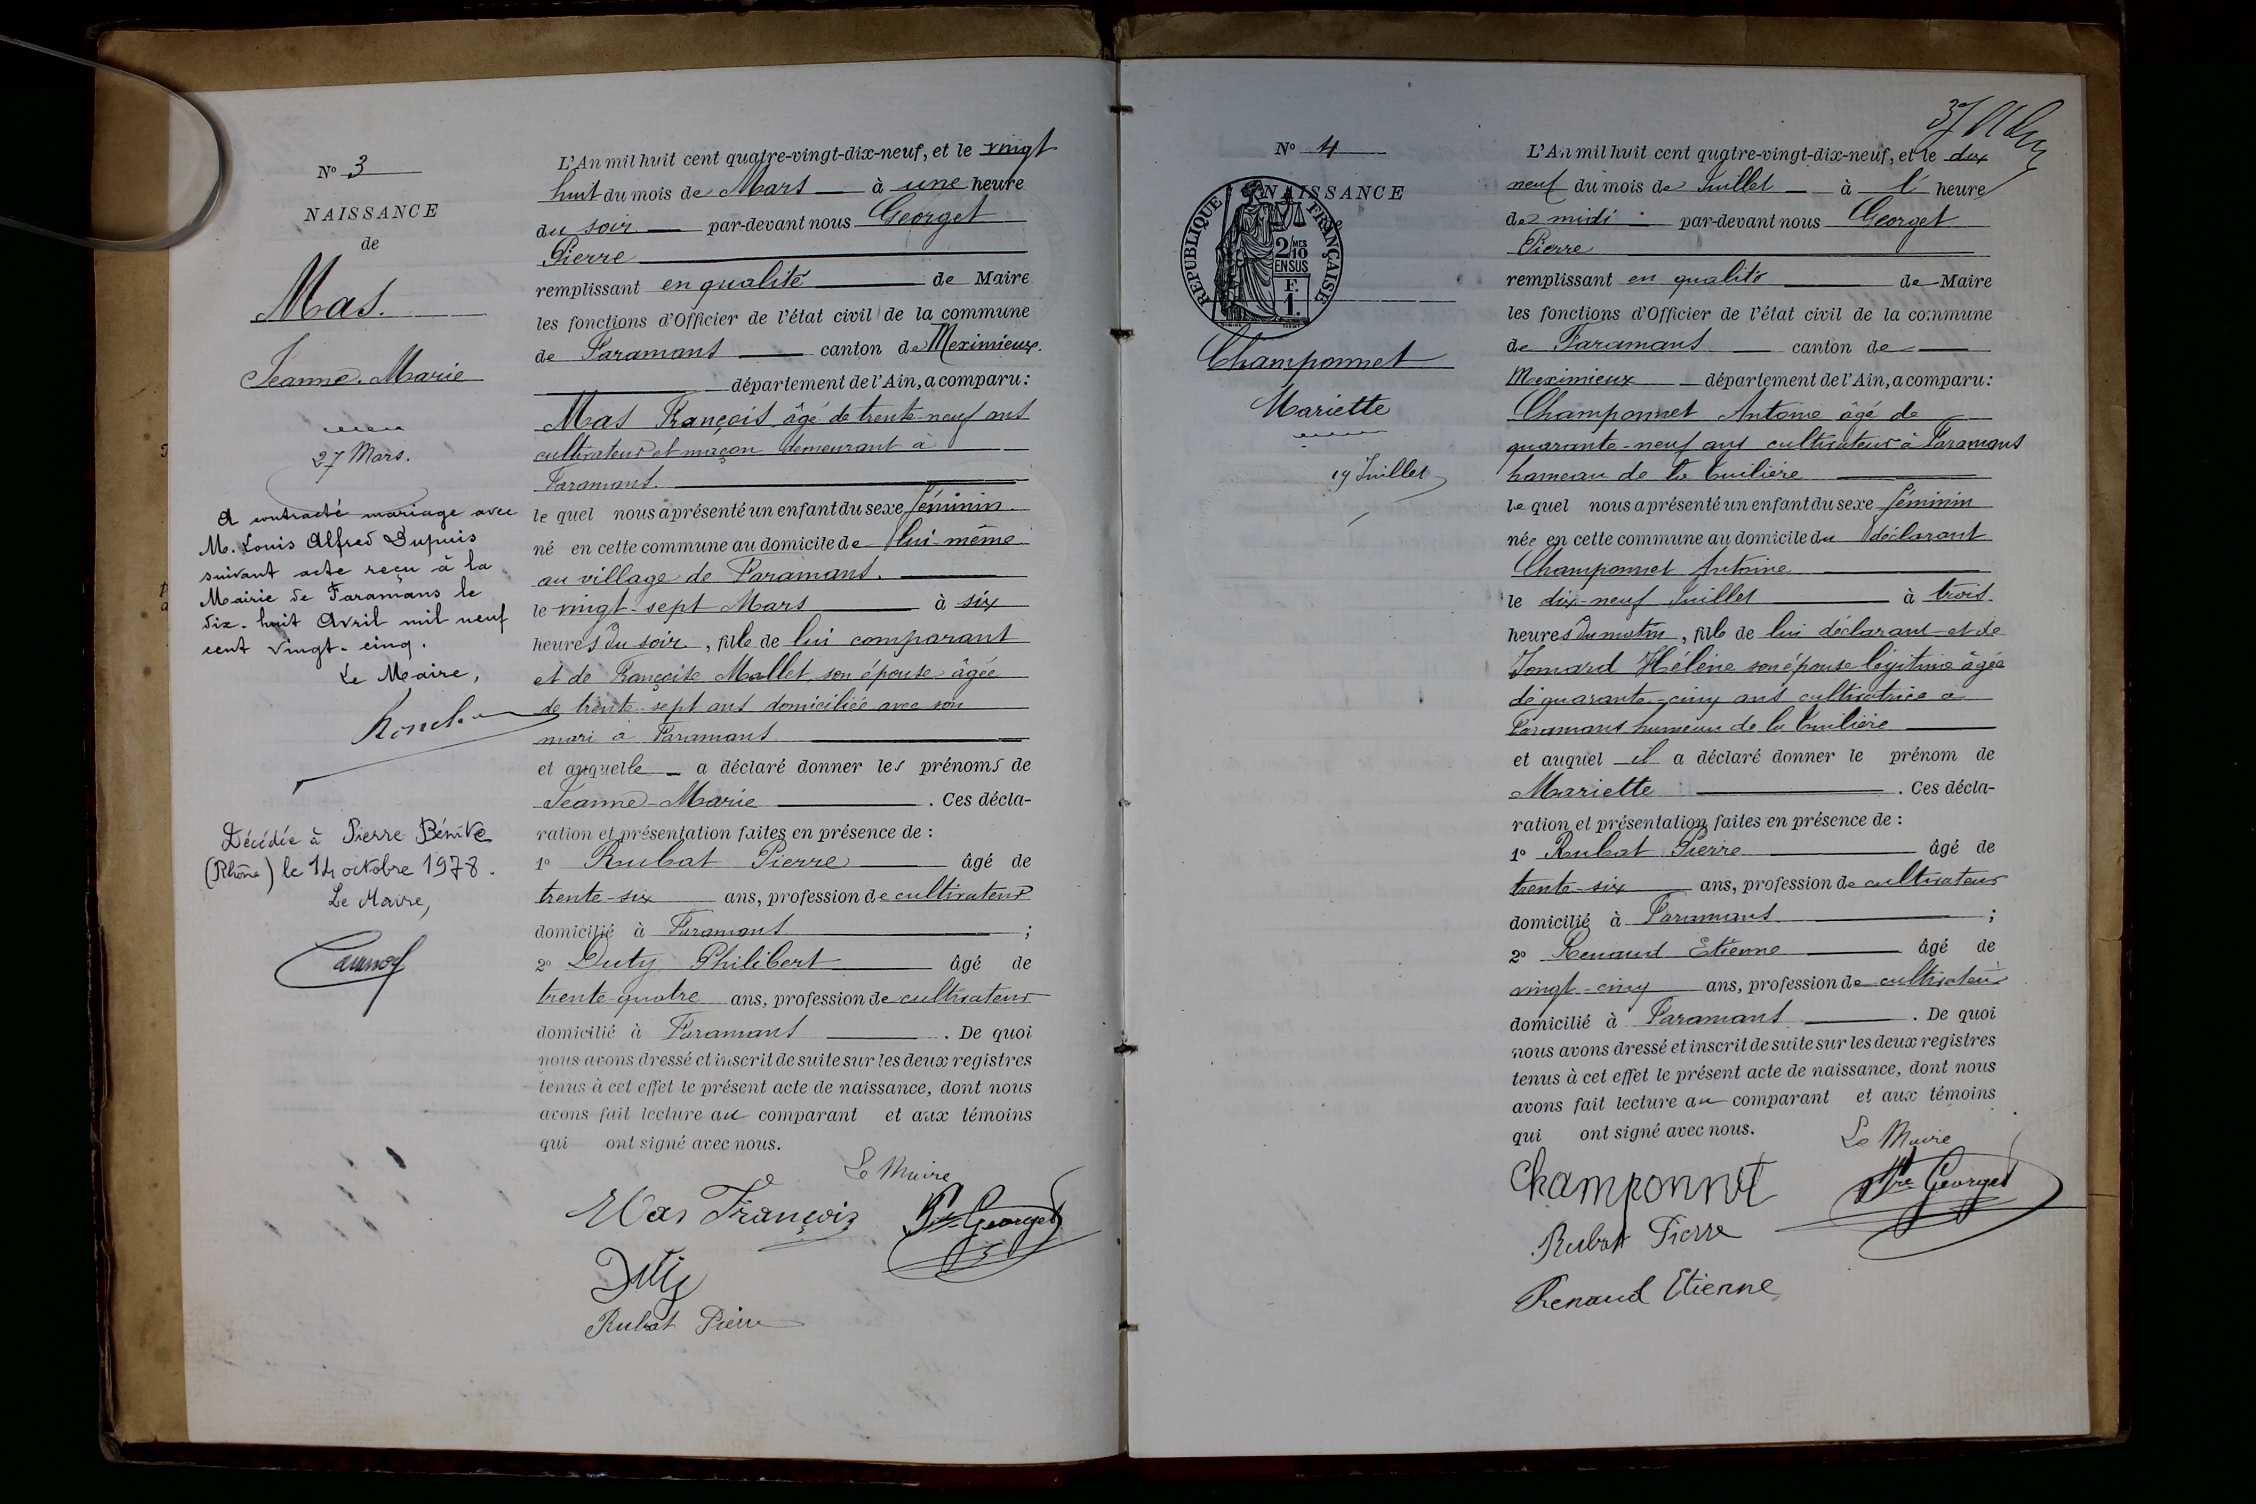 N° 3
NAISSANCE
de
Mas.
Jeanne-Marie
27 Mars.
A contracté mariage avec
M. Louis Alfred Dupuis
suivant acte reçu à la
Mairie de Faramans le
dix-huit Avril mil neuf
cent vingt-cinq.
Le Maire,
Décédée à Pierre Bénite
(Rhône) le 14 octobre 1978.
Le Maire,
L'An mil huit cent quatre-vingt-dix-neuf, et le vingt
huit du mois de Mars à une heure
du soir par-devant nous Georget
Pierre
remplissant en qualité de Maire
les fonctions d'Officier de l'état civil de la commune
de Faramans canton de Meximieux.
département de l'Ain, a comparu:
Mas François âgé de trente-neuf ans
cultivateur et maçon demeurant à
Faramans.
le quel nous a présenté un enfant du sexe féminin
né en cette commune au domicile de lui-même
au village de Faramans.
le vingt-sept Mars à six
heures du soir, fille de lui comparant
et de Françoise Mallet son épouse âgée
de trente-sept ans domiciliée avec son
mari à Faramans
et auquelle a déclaré donner les prénoms de
Jeanne-Marie. Ces décla-
ration et présentation faites en présence de :
1° Rubat Pierre âgé de
trente-six ans, profession de cultivateur
domicilié à Faramans ;
2° Duty Philibert âgé de
trente-quatre ans, profession de cultivateur
domicilié à Faramans. De quoi
nous avons dressé et inscrit de suite sur les deux registres
tenus à cet effet le présent acte de naissance, dont nous
avons fait lecture au comparant et aux témoins
qui ont signé avec nous.
Le Maire
Mas François
Pre Georget
Duty
Rubat Pierre
37
N° 4
NAISSANCE
REPUBLIQUE FRANÇAISE
2/10 MES
EN SUS
F.
1.
Champonnet
Mariette
19 Juillet
L'An mil huit cent quatre-vingt-dix-neuf, et le dix
neuf du mois de Juillet à l' heure
de midi par-devant nous Georget
Pierre
remplissant en qualité de Maire
les fonctions d'Officier de l'état civil de la commune
de Faramans canton de
Meximieux département de l'Ain, a comparu:
Champonnet Antoine âgé de
quarante-neuf ans cultivateur à Faramans
hameau de la Tuilière
le quel nous a présenté un enfant du sexe féminin
née en cette commune au domicile du déclarant
Champonnet Antoine
le dix-neuf Juillet à trois
heures du matin, fille de lui déclarant et de
Jomard Hélène son épouse légitime âgée
de quarante-cinq ans cultivatrice à
Faramans hameau de la Tuilière
et auquel il a déclaré donner le prénom de
Mariette. Ces décla-
ration et présentation faites en présence de :
1° Rubat Pierre âgé de
trente-six ans, profession de cultivateur
domicilié à Faramans ;
2° Renaud Etienne âgé de
vingt-cinq ans, profession de cultivateur
domicilié à Faramans. De quoi
nous avons dressé et inscrit de suite sur les deux registres
tenus à cet effet le présent acte de naissance, dont nous
avons fait lecture au comparant et aux témoins
qui ont signé avec nous.
Le Maire
Champonnet
Pre Georget
Rubat Pierre
Renaud Etienne